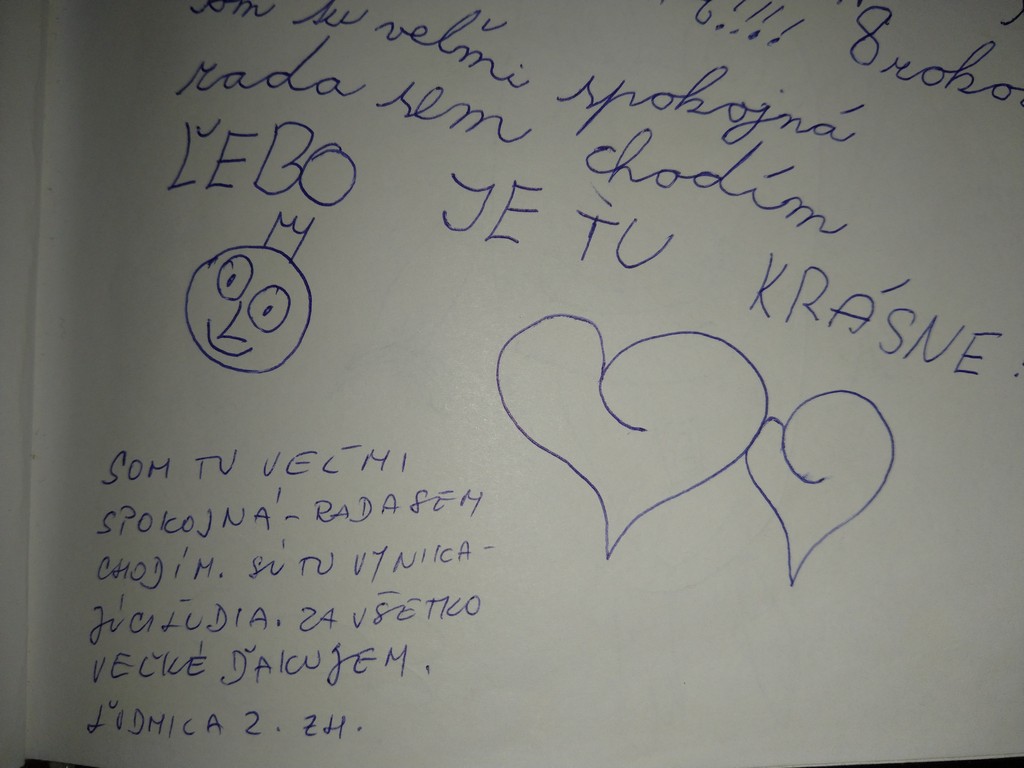 som tu veľmi spokojná
!!!! 8 roko
rada sem chodím
ĽEBO JE TU KRÁSNE!
SOM TU VEĽMI
SPOKOJNÁ - RADA SEM
CHODÍM. SÚ TU VYNIKA-
JÚCI ĽUDIA. ZA VŠETKO
VEĽKÉ ĎAKUJEM.
ĽUDMILA Z. ZH.